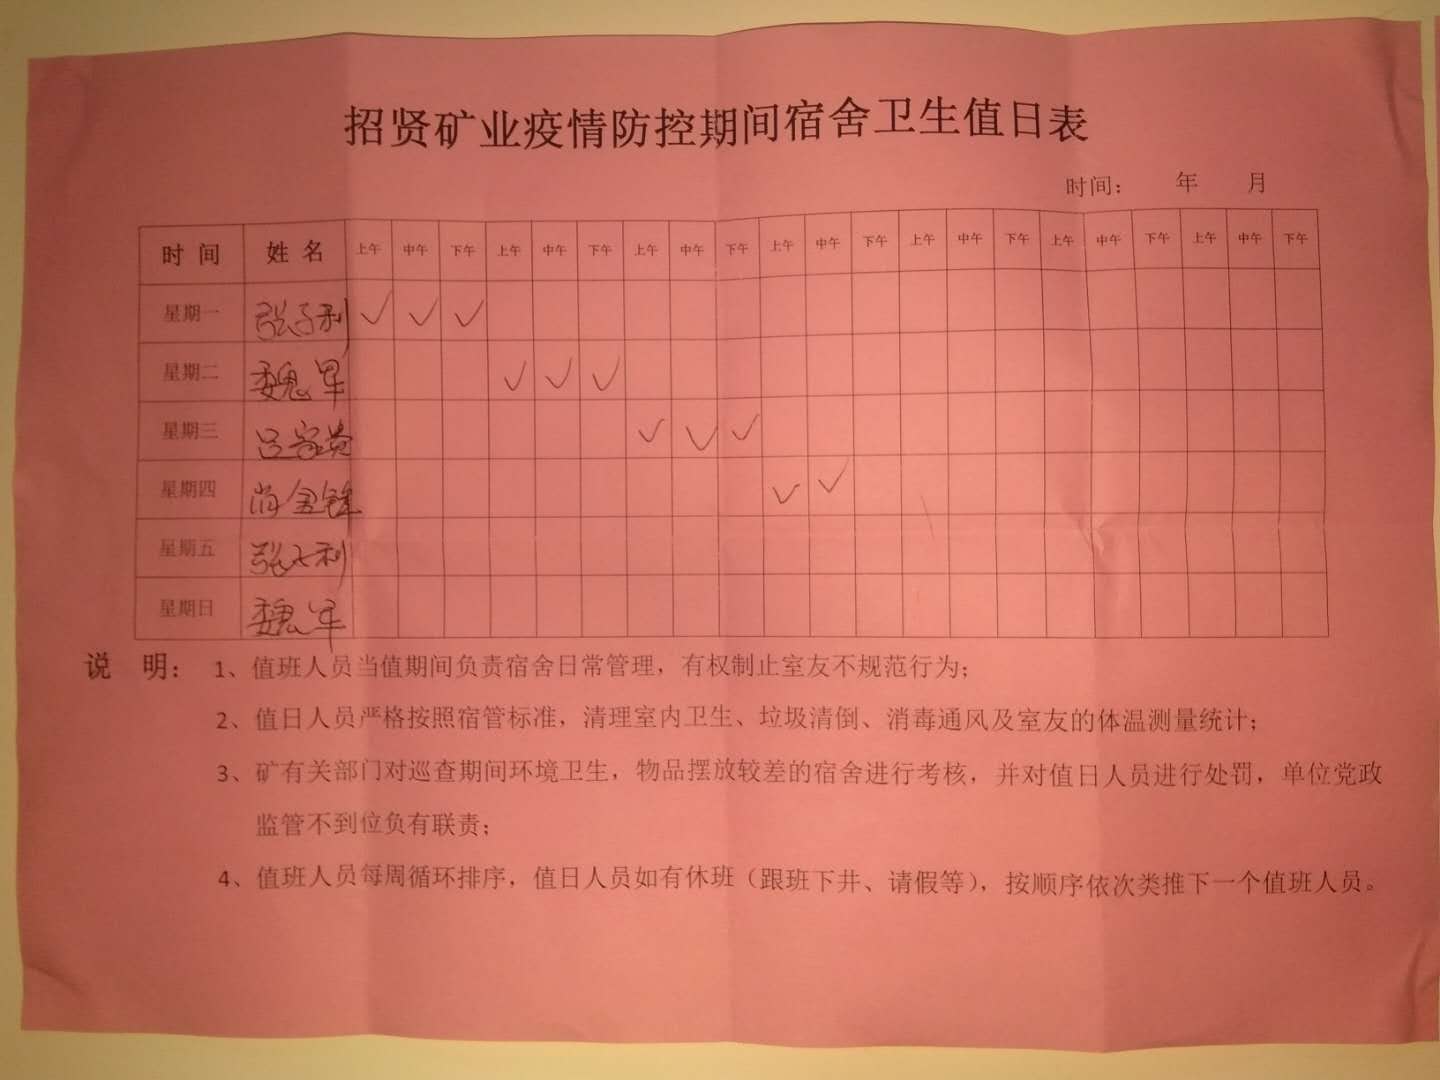 招贤矿业疫情防控期间宿舍卫生值日表
时间： 年 月
时 间 姓 名 上午 中午 下午 上午 中午 下午 上午 中午 下午 上午 中午 下午 上午 中午 下午 上午 中午 下午 上午 中午 下午
星期一 张子利 ✓ ✓ ✓
星期二 魏军 ✓ ✓ ✓
星期三 吕家贵 ✓ ✓ ✓
星期四 肖金 ✓ ✓
星期五 张子利
星期日 魏军
说 明： 1、值班人员当值期间负责宿舍日常管理，有权制止室友不规范行为；
2、值日人员严格按照宿管标准，清理室内卫生、垃圾清倒、消毒通风及室友的体温测量统计；
3、矿有关部门对巡查期间环境卫生，物品摆放较差的宿舍进行考核，并对值日人员进行处罚，单位党政
监管不到位负有联责；
4、值班人员每周循环排序，值日人员如有休班（跟班下井、请假等），按顺序依次类推下一个值班人员。